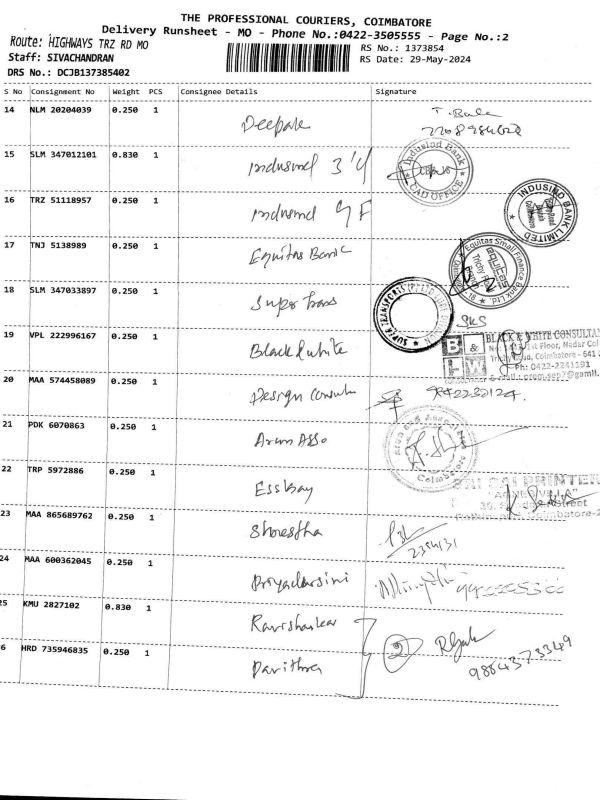 THE PROFESSIONAL COURIERS, COIMBATORE
Delivery Runsheet - MO - Phone No.:0422-3505555 - Page No.:2
Route: HIGHWAYS TRZ RD MO
RS No.: 1373854
Staff: SIVACHANDRAN
RS Date: 29-May-2024
DRS No.: DCJB137385402
S No Consignment No Weight PCS Consignee Details Signature
14 NLM 20204039 0.250 1 Deepak
15 SLM 347012101 0.830 1 Indusind 3'rd
IndusInd Bank
CAD OFFICE
16 TRZ 51118957 0.250 1 Indusind 9 F
INDUSIND BANK LIMITED
17 TNJ 5138989 0.250 1 Equitas Bank
Equitas Small Finance Bank Ltd.
equitas
Trichy Road
18 SLM 347033897 0.250 1 Super Trans
SUPER TRANSPORTS
SKS
19 VPL 222996167 0.250 1 Black & white
B & W
BLACK & WHITE CONSULTA
1st Floor, Nadar Col
Road, Coimbatore - 641
Ph: 0422-2241191
20 MAA 574458089 0.250 1 Design Consult
21 PDK 6070863 0.250 1 Arun Asso
Arun and Associates
Coimbatore
22 TRP 5972886 0.250 1 Essbay
SRI SAI PRINTER
Street
Coimbatore-2
23 MAA 865689762 0.250 1 Shrestha
24 MAA 600362045 0.250 1 Priyadarsini
25 KMU 2827102 0.830 1 Ravishankar
6 HRD 735946835 0.250 1 Pavithra
2
9864373349